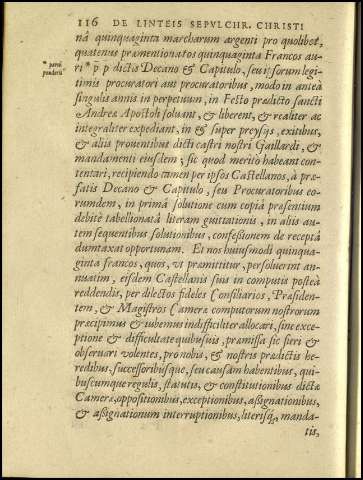 116 DE LINTEIS SEPVLCHR. CHRISTI
nâ quinquaginta marcharum argenti pro quolibet,
quatenus præmentionatos quinquaginta Francos au-
* parui ponderis
ri * p̄ p dictis Decano & Capitulo, seu ipsorum legi-
timis procuratori aut procuratoribus, modo in anteà
singulis annis in perpetuum, in Festo prædicto sancti
Andreæ Apostoli soluant, & liberent, & realiter ac
integraliter expediant, in & super preysijs, exitibus,
& aliis prouentibus dicti castri nostri Gaillardi, &
mandamenti eiusdem; sic quod meritò habeant con-
tentari, recipiendo tamen per ipsos Castellanos, à præ-
fatis Decano & Capitulo, seu Procuratoribus eo-
rumdem, in primâ solutione cum copiâ præsentium
debitè tabellionatâ literam guittationis, in aliis au-
tem sequentibus solutionibus, confessionem de receptâ
dumtaxat opportunam. Et nos huiusmodi quinqua-
ginta francos, quos, vt præmittitur, persoluerint an-
nuatim, eisdem Castellanis suis in computis posteà
reddendis, per dilectos fideles Consiliarios, Præsiden-
tem, & Magistros Cameræ computorum nostrorum
præcipimus & iubemus indifficiliter allocari, sine exce-
ptione & difficultate quibusuis, præmissa sic fieri &
obseruari volentes, pro nobis, & nostris prædictis he-
redibus, successoribusque, seu causam habentibus, qui-
buscumque regulis, statutis, & constitutionibus dictæ
Cameræ, oppositionibus, exceptionibus, assignationibus,
& assignationum interruptionibus, literisq́, manda-
tis,